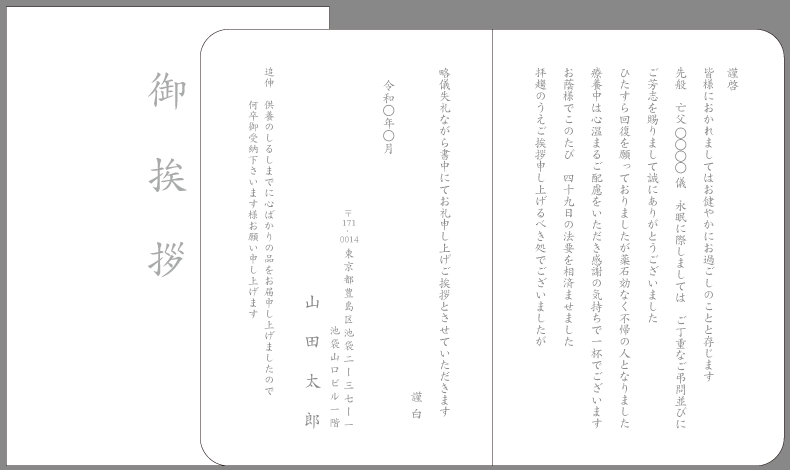 御挨拶
謹啓
皆様におかれましてはお健やかにお過ごしのことと存じます
先般 亡父〇〇〇〇儀 永眠に際しましては ご丁重なご弔問並びに
ご芳志を賜りまして誠にありがとうございました
ひたすら回復を願っておりましたが薬石効なく不帰の人となりました
療養中は心温まるご配慮をいただき感謝の気持ちで一杯でございます
お蔭様でこのたび 四十九日の法要を相済ませました
拝趨のうえご挨拶申し上げるべき処でございましたが
略儀失礼ながら書中にてお礼申し上げご挨拶とさせていただきます
謹白
令和〇年〇月
〒171-0014 東京都豊島区池袋二ー三七ー一
池袋山口ビル一階
山田太郎
追伸 供養のしるしまでに心ばかりの品をお届申し上げましたので
何卒御受納下さいます様お願い申し上げます